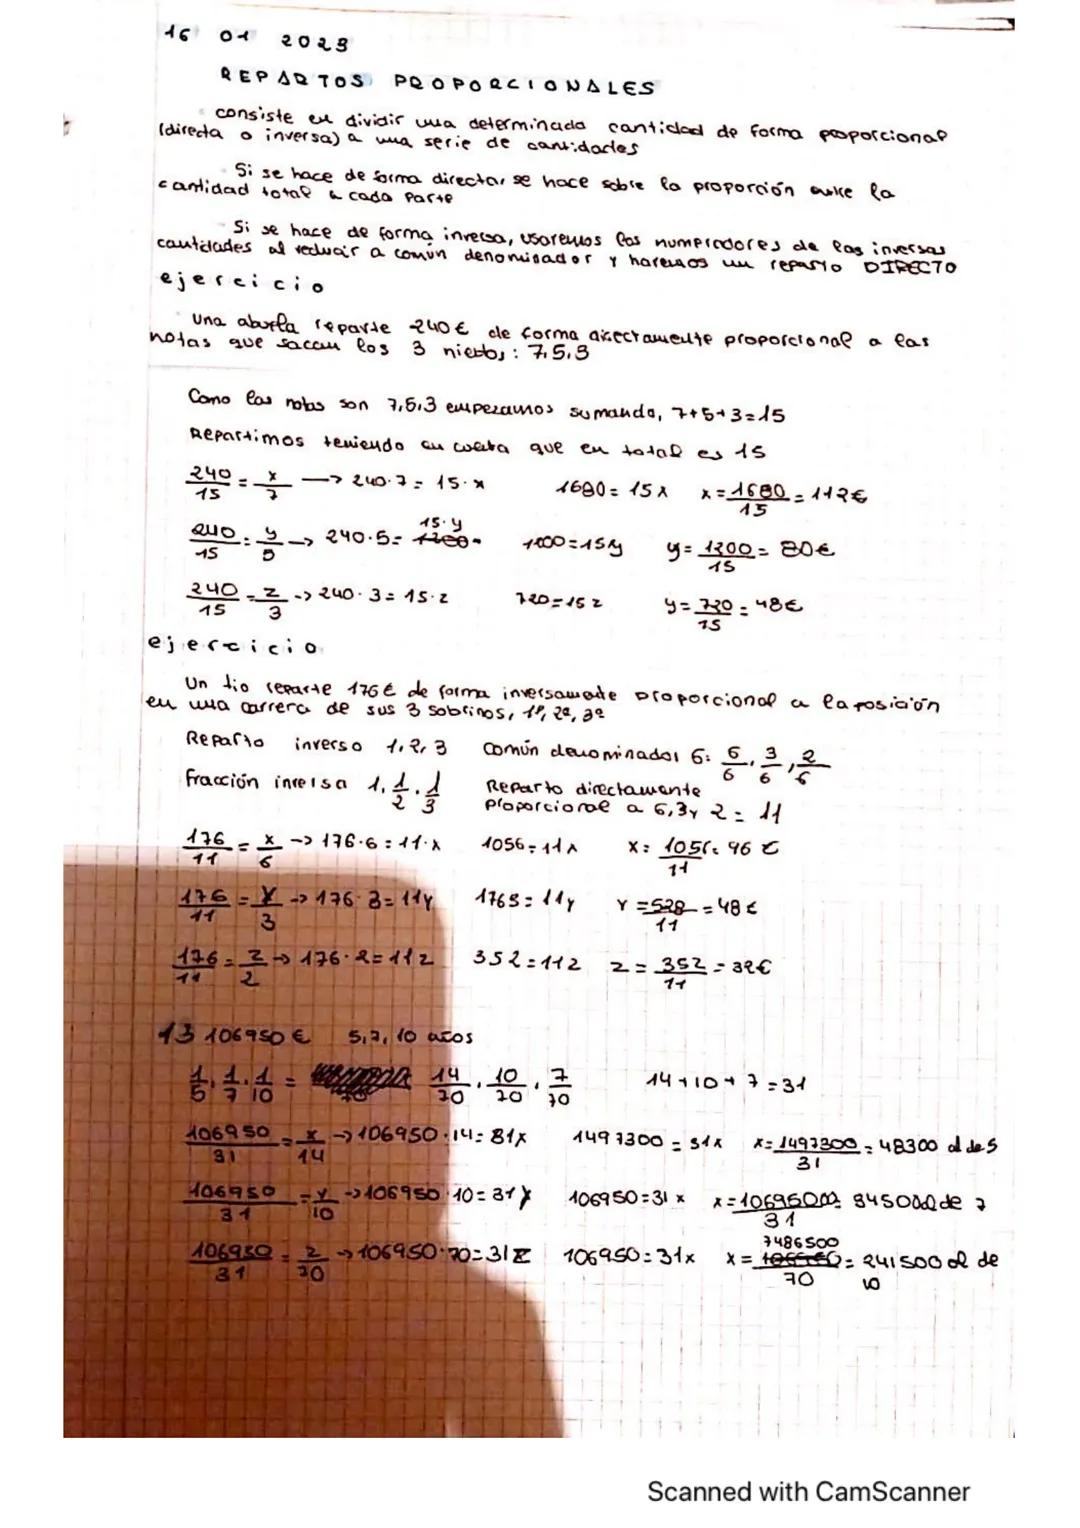 16 01 2023
REPARTOS PROPORCIONALES
consiste en dividir una determinada cantidad de forma proporcional
(directa o inversa) a una serie de cantidades
Si se hace de forma directa, se hace sobre la proporción entre la
cantidad total a cada parte
Si se hace de forma inversa, usaremos los numeradores de las inversas
cantidades al reducir a común denominador y haremos un reparto DIRECTO
ejercicio
Una abuela reparte 240€ de forma directamente proporcional a las
notas que sacan los 3 nietos: 7,5,3
Como las notas son 7,5,3 empezamos sumando, 7+5+3=15
Repartimos teniendo en cuenta que en total es 15
240/15 = x/7 → 240·7 = 15·x 1680 = 15x x = 1680/15 = 112€
240/15 = y/5 → 240·5 = 15·y 1200 = 15y y = 1200/15 = 80€
240/15 = z/3 -> 240·3 = 15·z 720 = 15z y = 720/15 = 48€
ejercicio
Un tio reparte 176€ de forma inversamente proporcional a la posición
en una carrera de sus 3 sobrinos, 1º, 2º, 3º
Reparto inverso 1, 2, 3 Común denominador 6: 6/6, 3/6, 2/6
Fracción inversa 1, 1/2, 1/3 Reparto directamente
proporcional a 6,3 y 2 = 11
176/11 = x/6 -> 176·6 = 11·x 1056 = 11x x = 1056/11 = 96€
176/11 = y/3 -> 176·3 = 11y 1763 = 11y y = 528/11 = 48€
176/11 = z/2 → 176·2 = 11z 352 = 11z z = 352/11 = 32€
13 106950€ 5, 7, 10 años
1/5, 1/7, 1/10 = 14/70, 10/70, 7/70 14+10+7 = 31
106950/31 = x/14 → 106950·14 = 31x 1497300 = 31x x = 1497300/31 = 48300 al de 5
106950/31 = y/10 → 106950·10 = 31y 106950 = 31x x = 1069500/31 = 34500 al de 7
106950/31 = z/70 → 106950·70 = 31z 106950 = 31x x = 7486500/70 = 241500 al de
10
Scanned with CamScanner